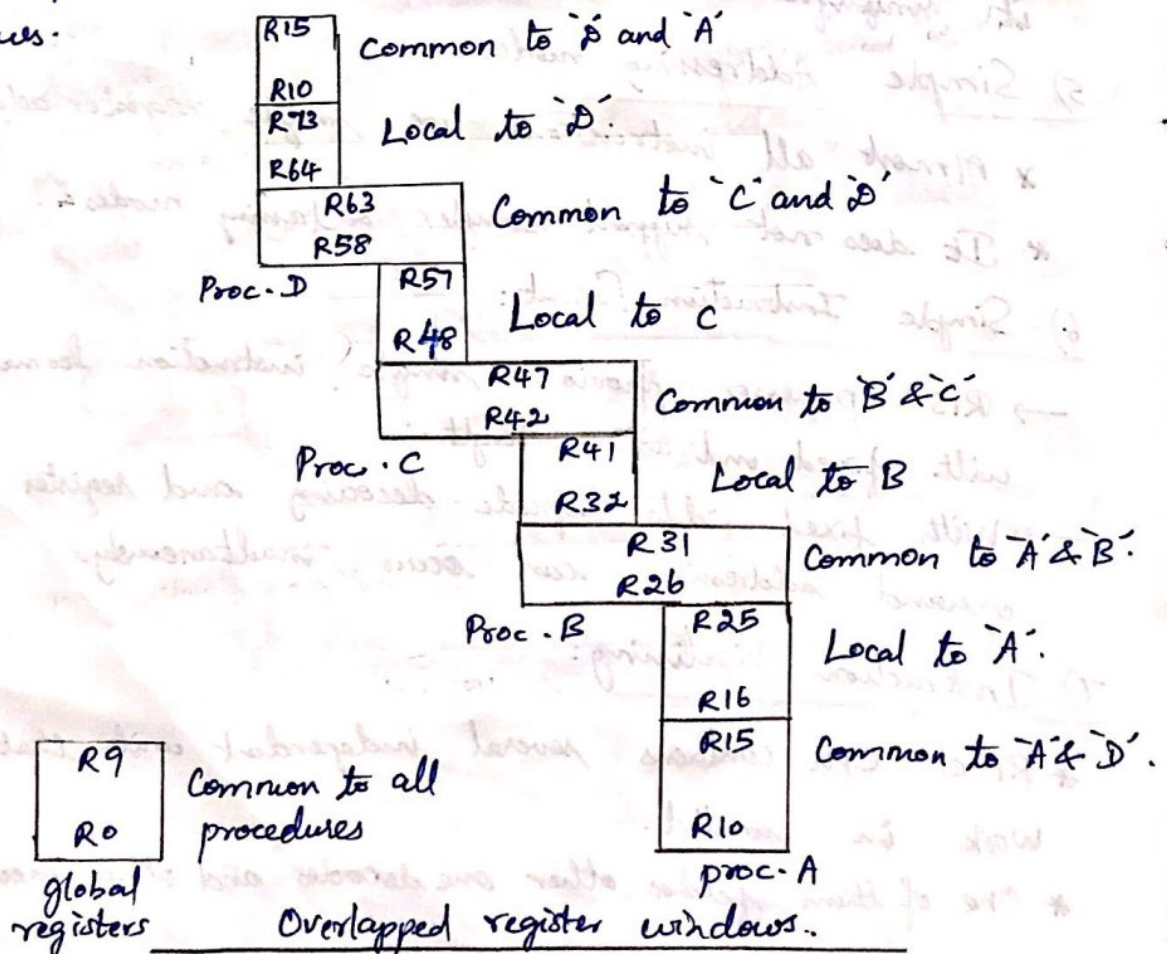 R15
Common to `D´ and `A´
R10
R73
Local to `D´.
R64
R63
Common to `C´ and `D´
R58
Proc. D
R57
Local to C
R48
R47
Common to `B´ & `C´
R42
Proc. C
R41
Local to B
R32
R31
Common to `A´ & `B´.
R26
Proc. B
R25
Local to `A´.
R16
R15
Common to `A´ & `D´.
R10
proc. A
R9
Common to all
R0
procedures
global
registers
Overlapped register windows..